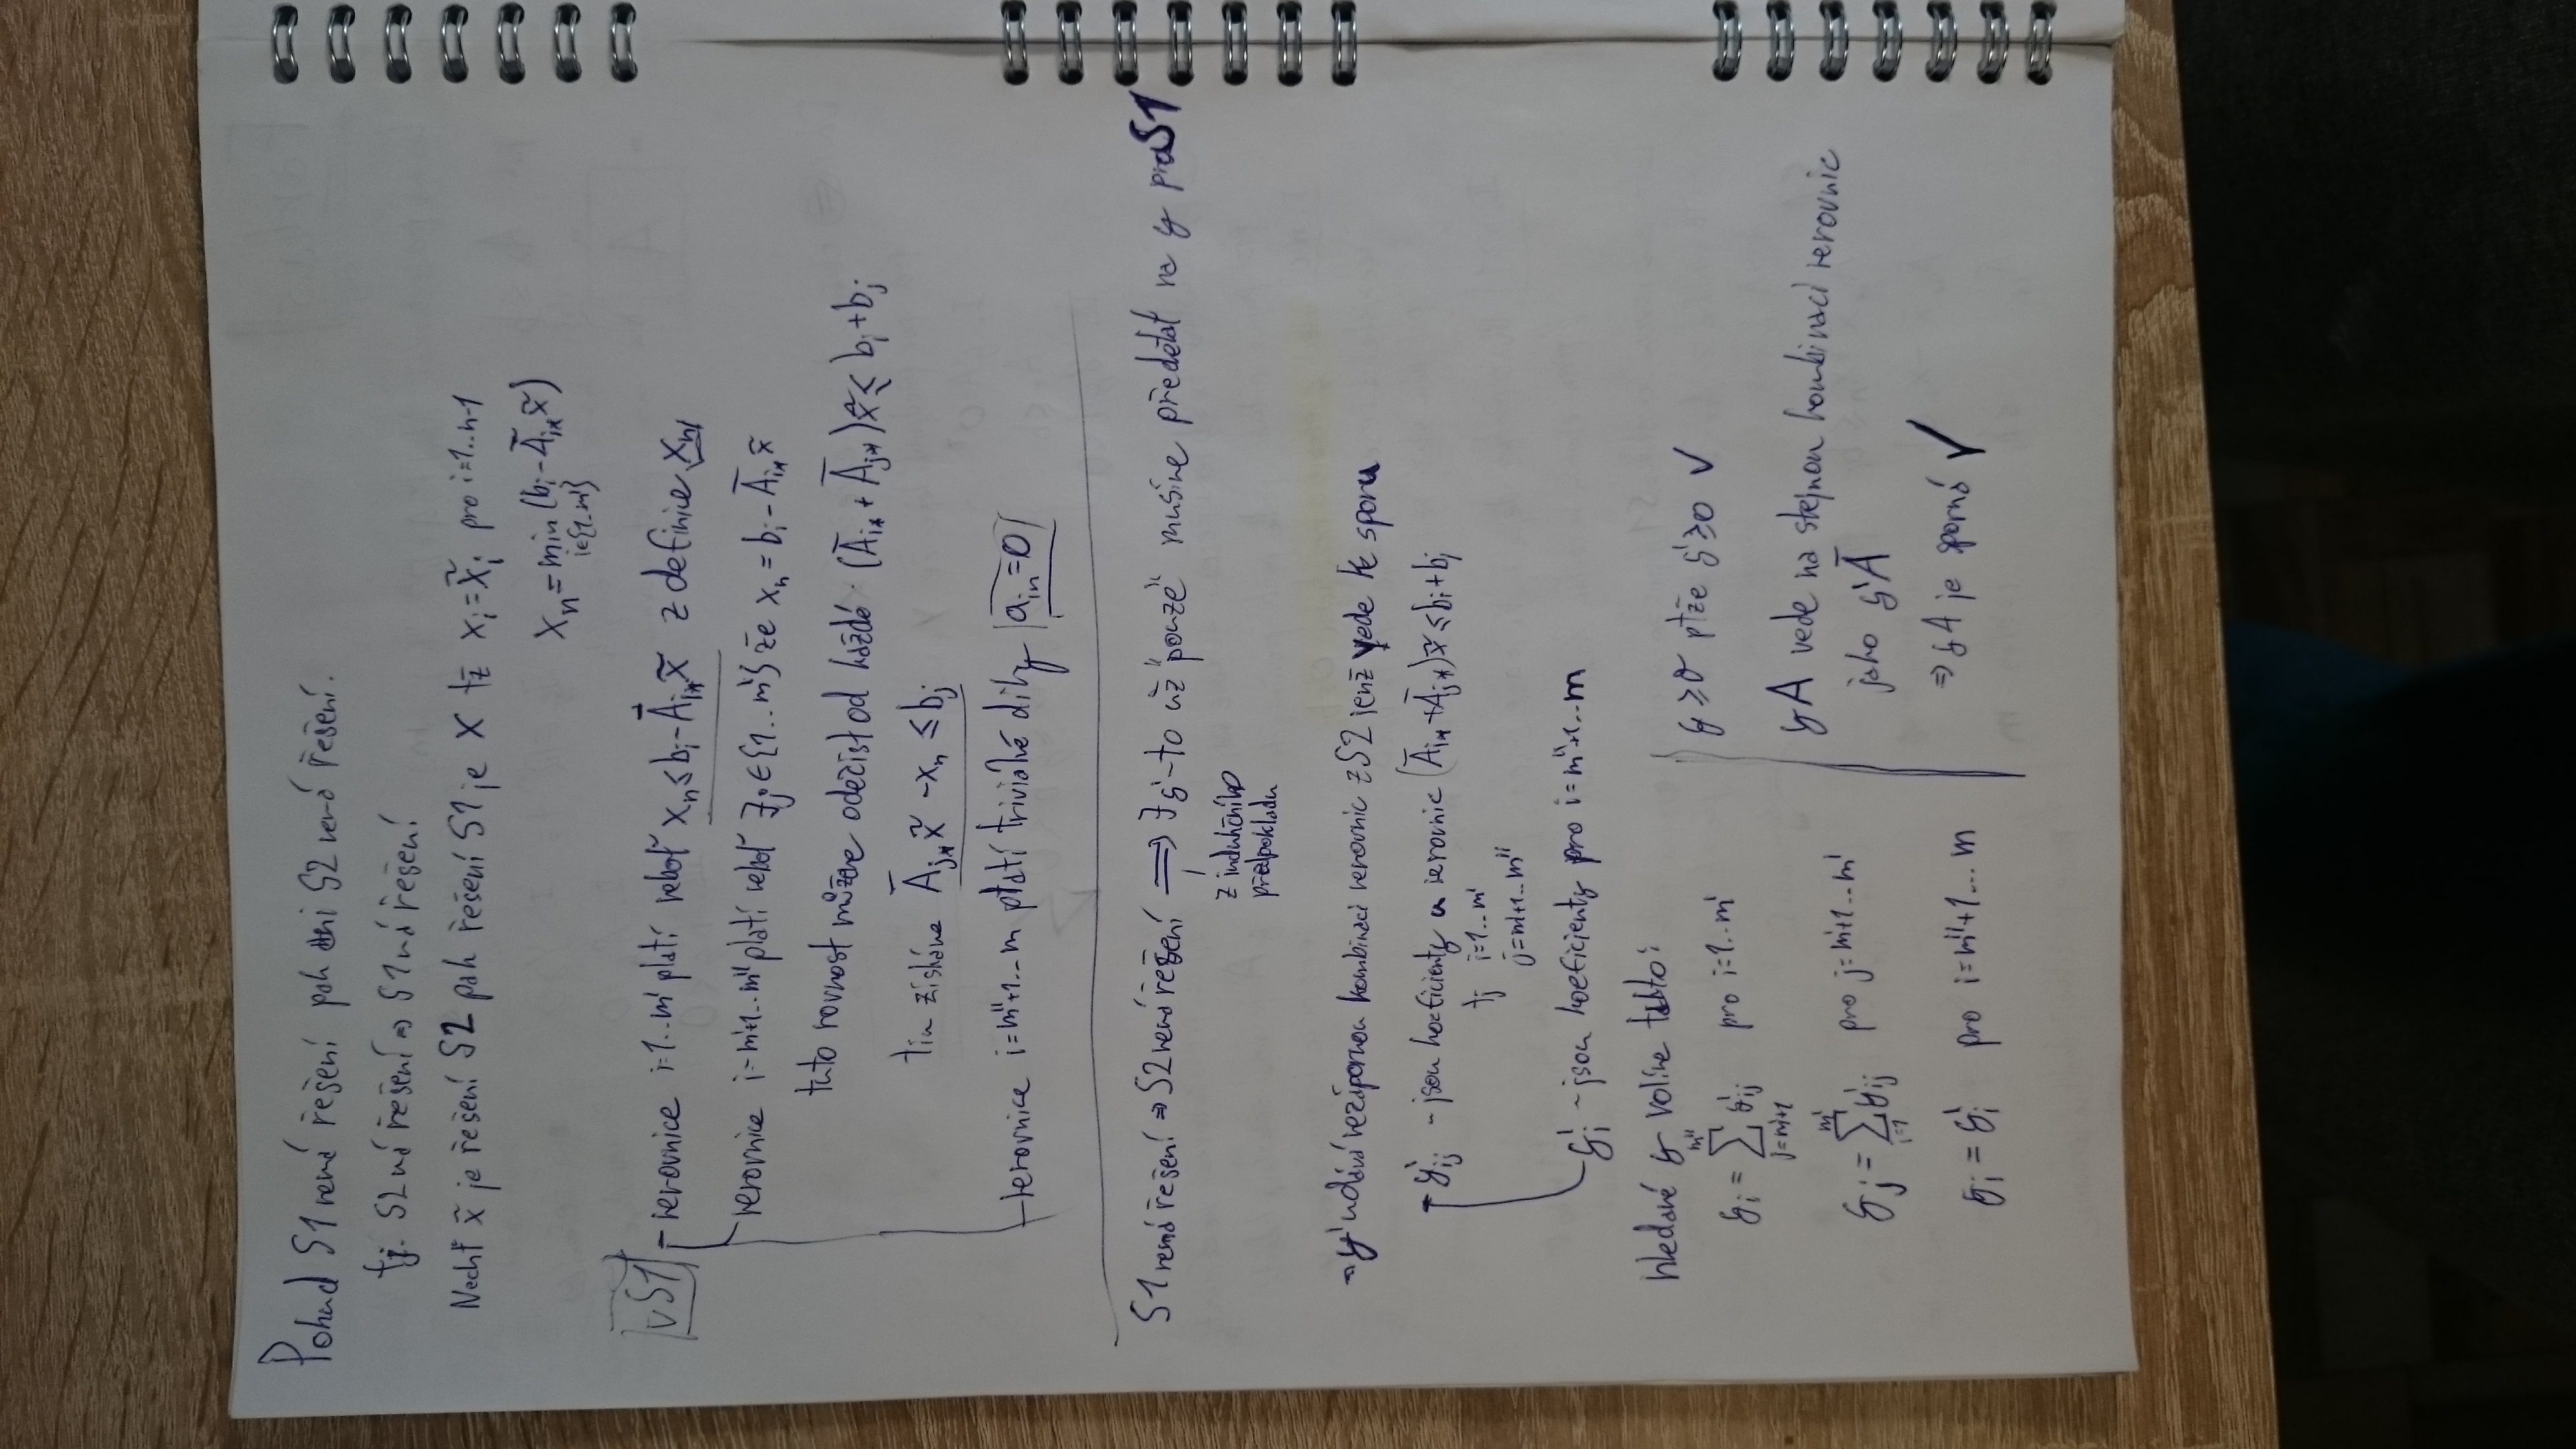 Pokud S1 nemá řešení pak ani S2 nemá řešení.
tj. S2 má řešení ⇒ S1 má řešení
Nechť x̃ je řešení S2 pak řešení S1 je x tž x_i = x̃_i pro i=1..n-1
x_n = min (b_i - Ā_i* x̃)
i∈{1..m'}
v S1
nerovnice i=1..m' platí neboť x_n ≤ b_i - Ā_i* x̃ z definice x_n
nerovnice i=m'+1..m'' platí neboť ∃j ∈ {1..m'} že x_n = b_i - Ā_i* x̃
tuto rovnost můžeme odečíst od každé (Ā_i* + Ā_j*) x̃ ≤ b_i + b_j
tím získáme Ā_j* x̃ - x_n ≤ b_j
nerovnice i=m''+1..m platí triviálně díky a_in = 0
S1 nemá řešení ⇒ S2 nemá řešení ⟹ ∃ y' ~ to už "pouze" musíme předělat na y pro S1
z indukčního
předpokladu
→ y' udává nezápornou kombinaci nerovnic z S2 jenž vede ke sporu
y'_ij ~ jsou koeficienty u nerovnic (Ā_i* + Ā_j*) x̃ ≤ b_i + b_j
tj i=1..m'
j=m'+1..m''
y'_i ~ jsou koeficienty pro i=m''+1..m
hledané y volíme takto:
y_i = ∑_{j=m'+1}^{m''} y'_ij pro i=1..m'
y_j = ∑_{i=1}^{m'} y'_ij pro j=m'+1..m'
y_i = y'_i pro i=m''+1...m
y ≥ 0 ptže y' ≥ 0 ✓
yA vede na stejnou kombinaci nerovnic
jako y'Ā
⇒ yA je sporná ✓